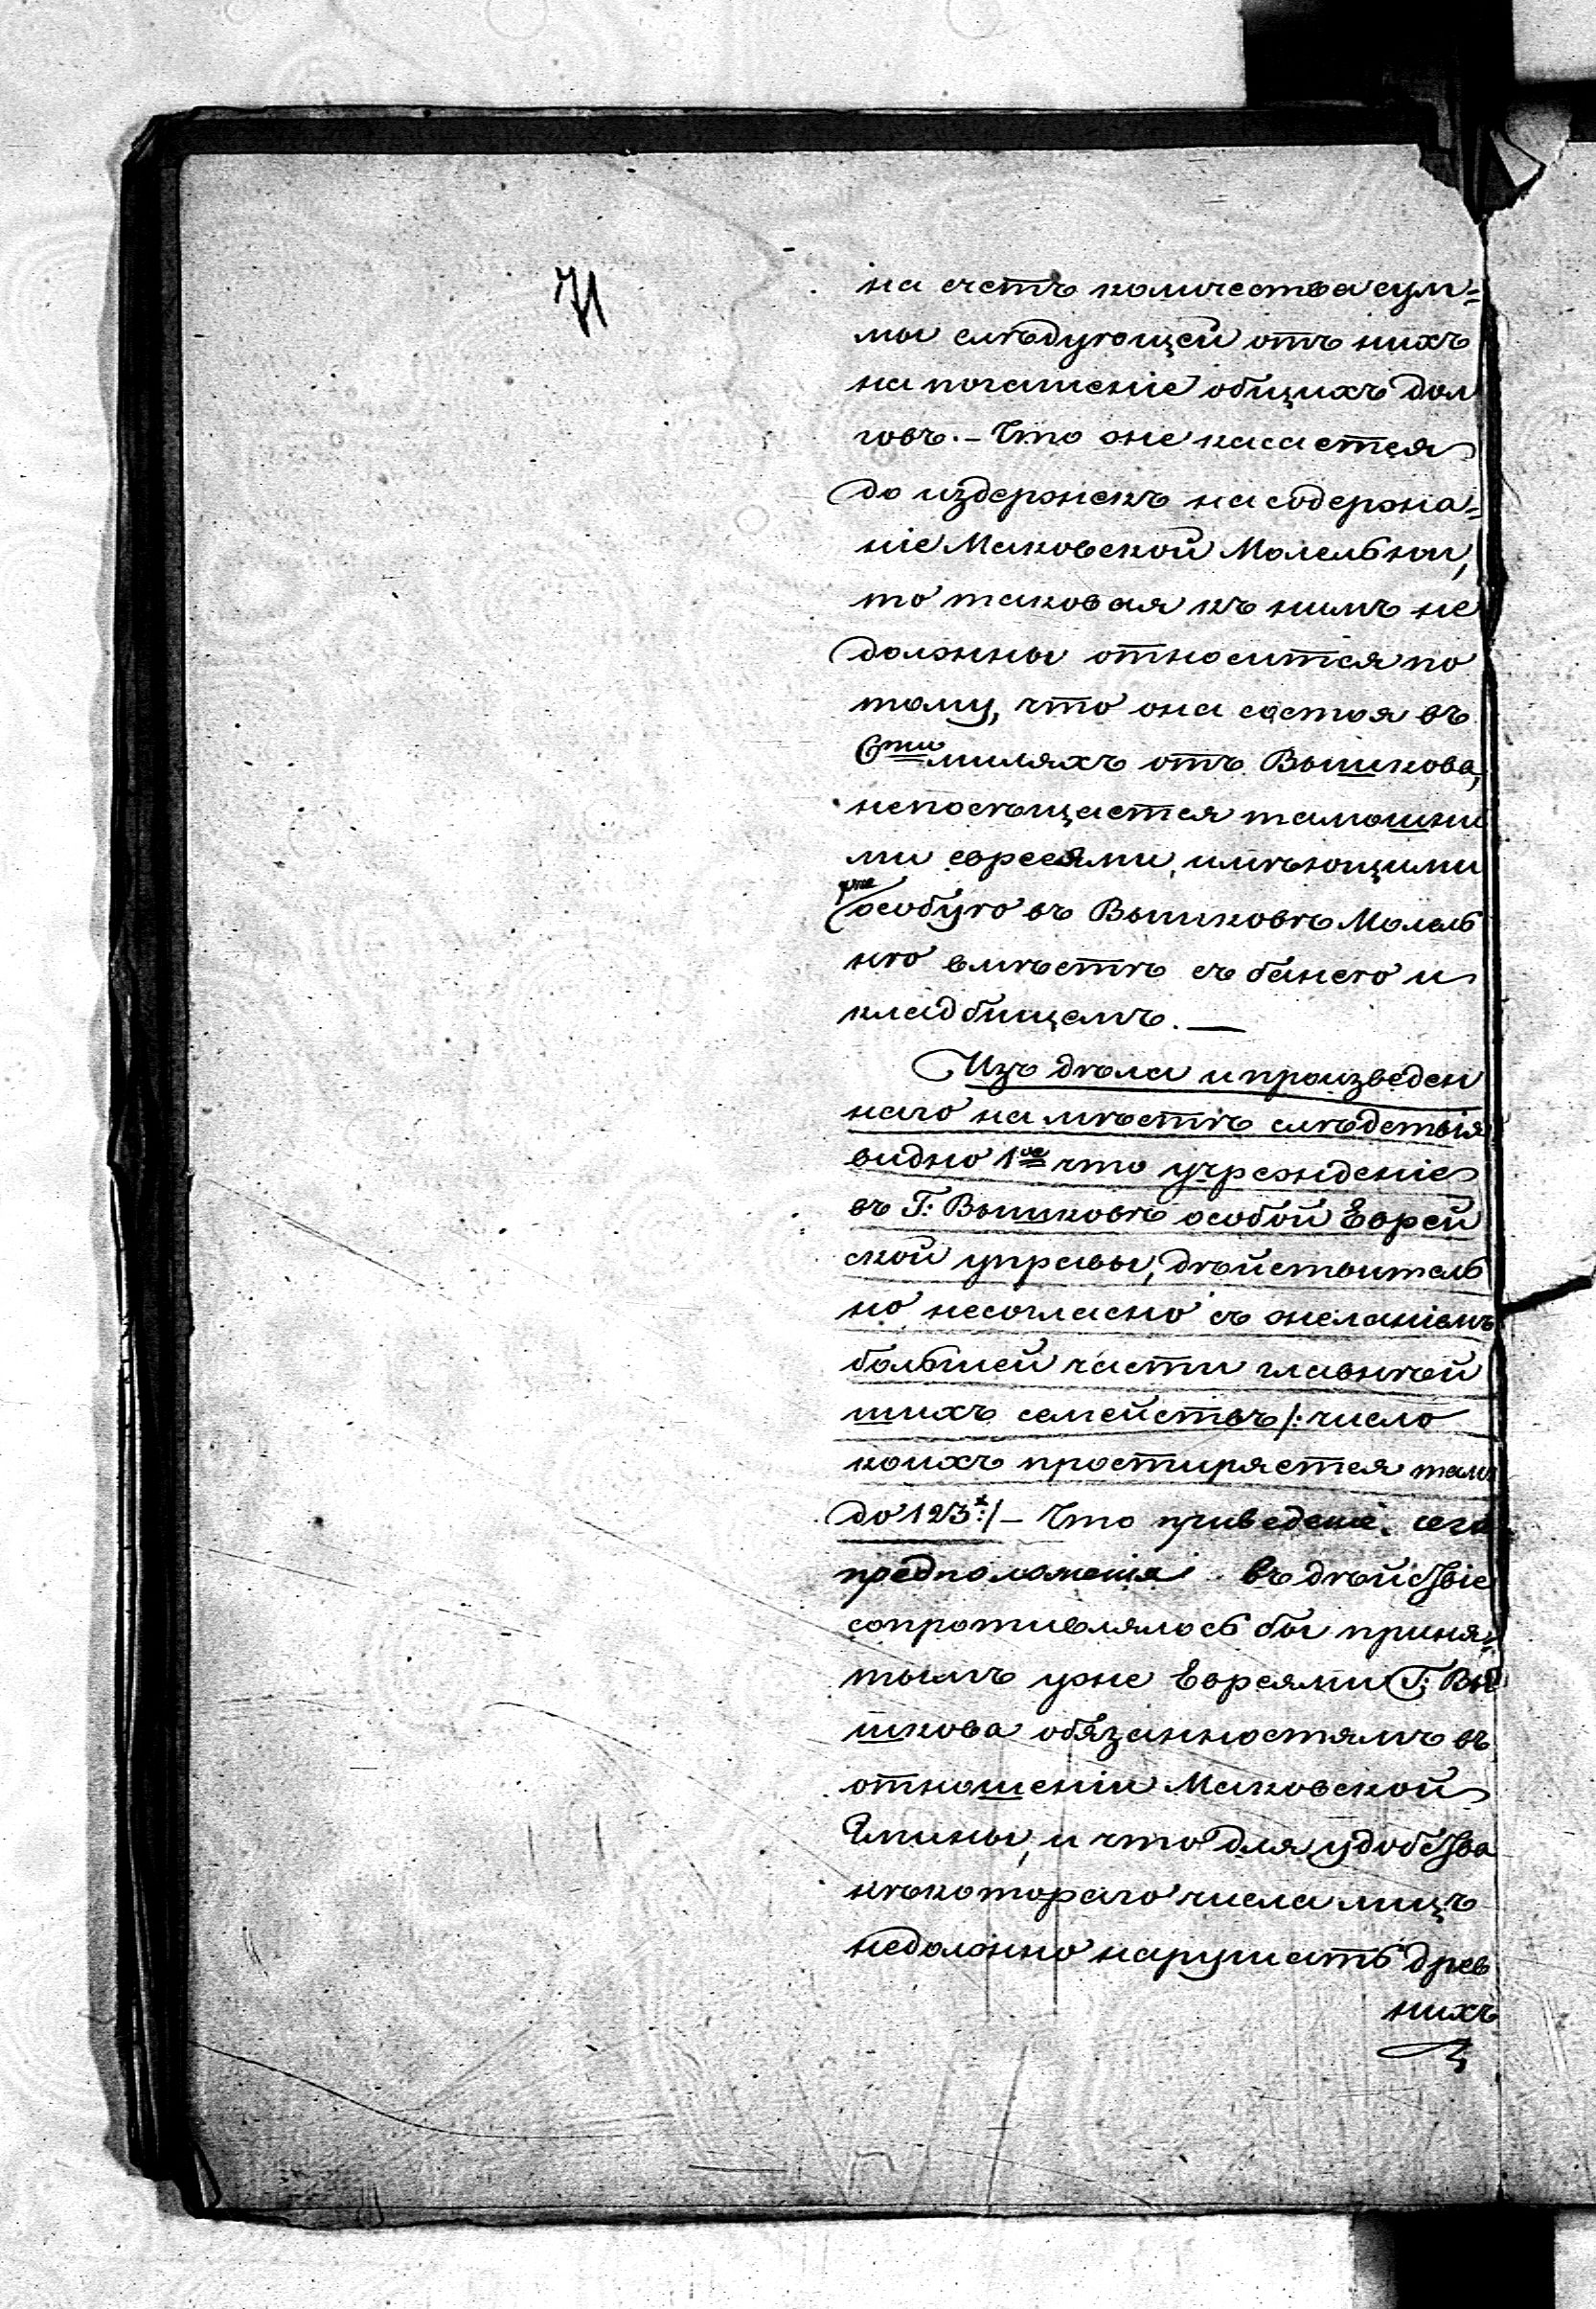 71
на счетъ количества сум=
мы слѣдующей отъ нихъ
на погашеніе общихъ дол
говъ. – Что же касается
до издержекъ на содержа=
ніе Маковской Молельни,
то таковая къ нимъ не
должны относится по
тому, что она состоя въ
6ти миляхъ отъ Вышкова,
непосѣщается тамошни
ми евреями, имѣющими
уже
особую въ Вышковѣ Молель
ню вмѣстѣ съ банею и
кладбищемъ. —
Изъ дѣла и произведен
наго на мѣстѣ слѣдствія
видно 1ое что учрежденіе
въ Г: Вышковѣ особой Еврей
ской управы, дѣйствитель
но несогласно съ желаніемъ
большей части главнѣй
шихъ семействъ /: число
коихъ простиряется тамъ
до 123х :/ – Что приведеніе сего
предположенія въ дѣйствіе
сопротивлялось бы приня=
тымъ уже Евреями Г: Вы
шкова обязанностямъ въ
отношеніи Маковской
Гмины, и что для удобства
нѣкотораго числа лицъ
недолжно нарушать древ
нихъ